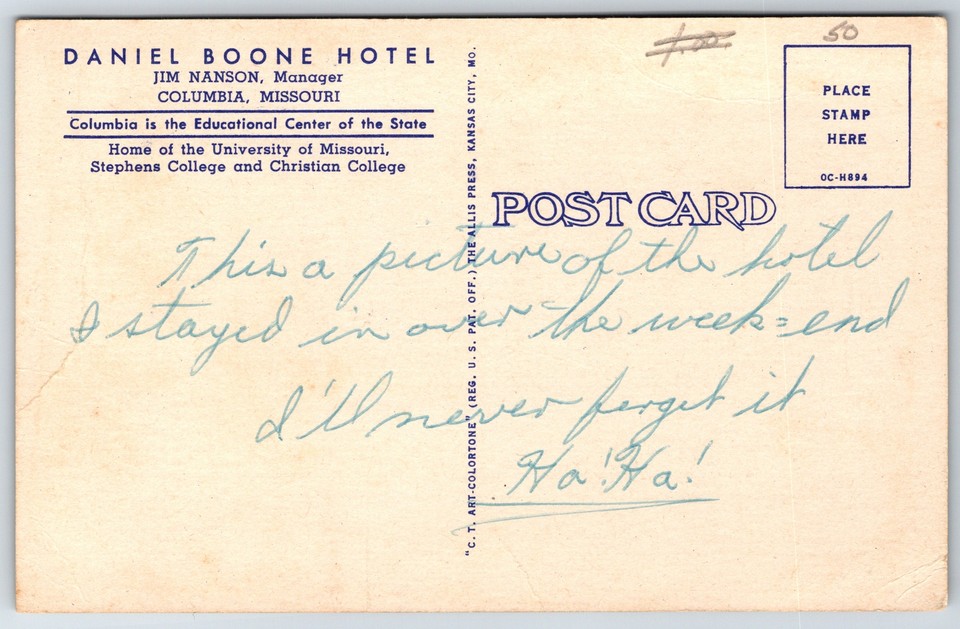 DANIEL BOONE HOTEL
JIM NANSON, Manager
COLUMBIA, MISSOURI
Columbia is the Educational Center of the State
Home of the University of Missouri,
Stephens College and Christian College
"C. T. ART-COLORTONE" (REG. U. S. PAT. OFF.) THE ALLIS PRESS, KANSAS CITY, MO.
1.00
50
PLACE
STAMP
HERE
OC-H894
POST CARD
This a picture of the hotel
I stayed in over the week=end
I'll never forget it
Ha! Ha!